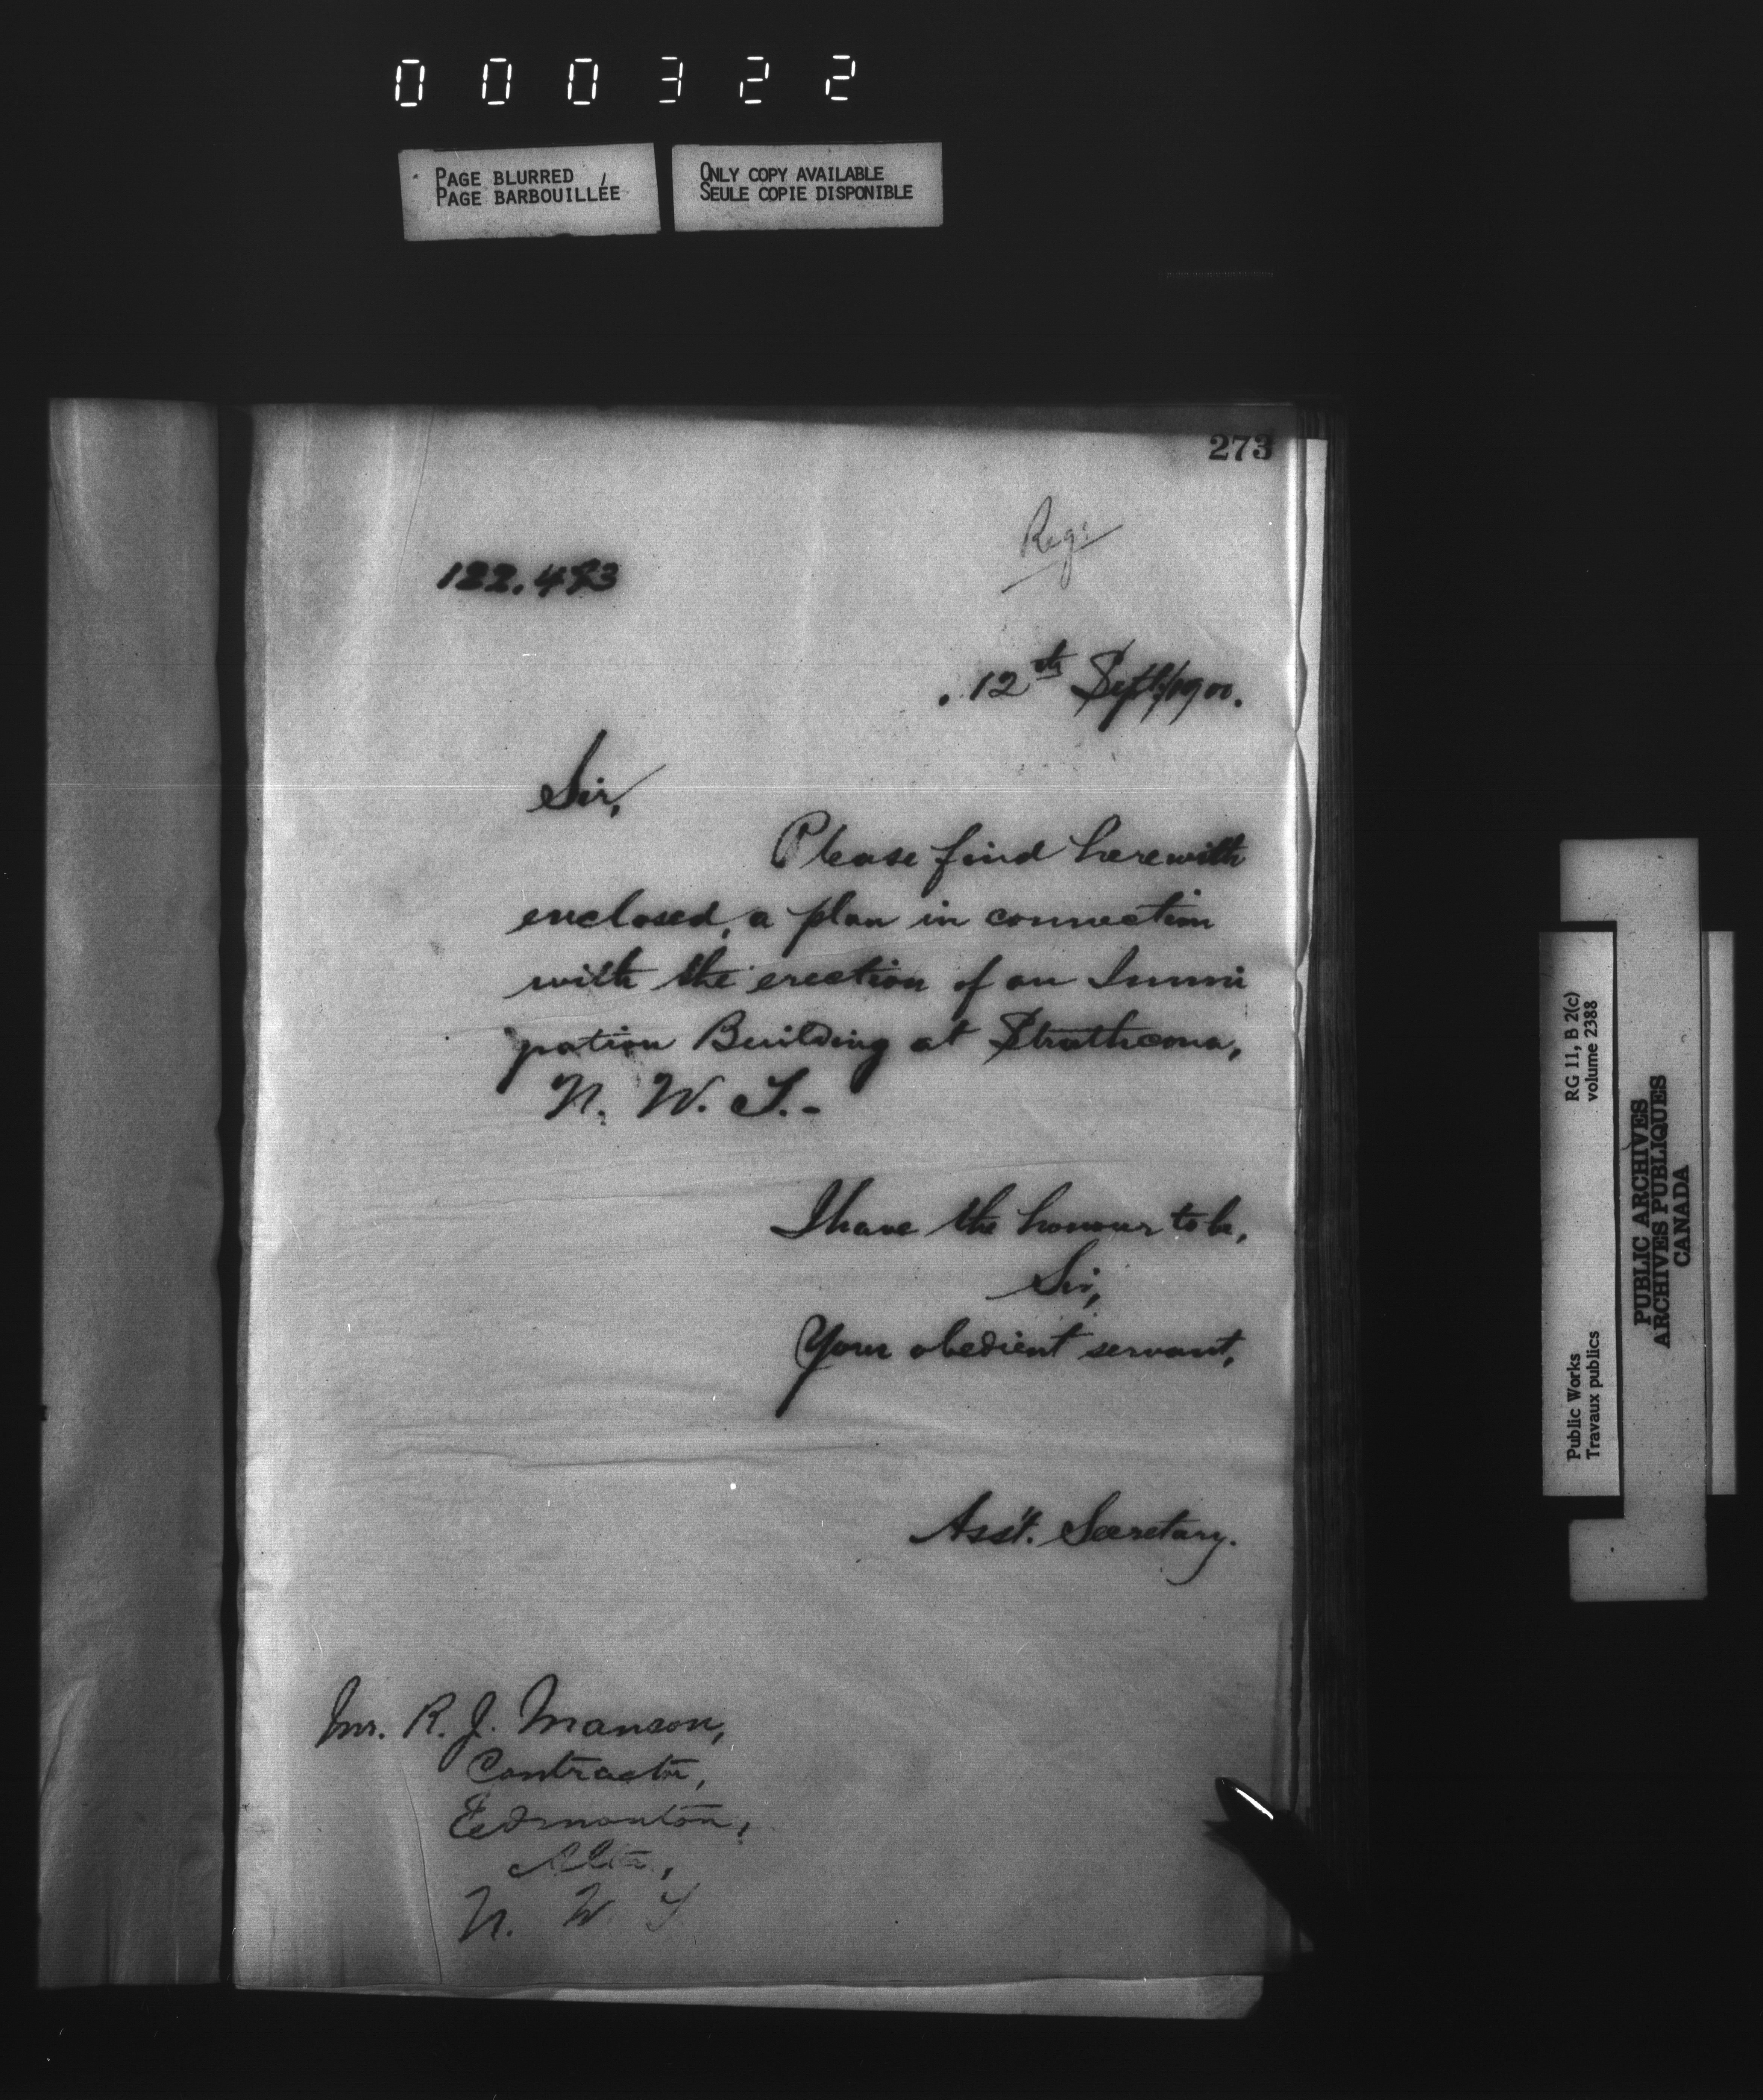 000322
PAGE BLURRED
PAGE BARBOUILLÉE
ONLY COPY AVAILABLE
SEULE COPIE DISPONIBLE
273
Reg:
12th Sept./1900.
Sir,
Please find herewith
enclosed, a plan in connection
with the erection of an Immi
gration Building at Strathcona,
N. W. T.-
I have the honour to be,
Sir,
Your obedient servant,
Ass't. Secretary.
Mr. R. J. Manson,
Contractor,
Edmonton,
Alta,
N. W. T
RG 11, B 2(c)
volume 2388
Public Works
Travaux publics
PUBLIC ARCHIVES
ARCHIVES PUBLIQUES
CANADA